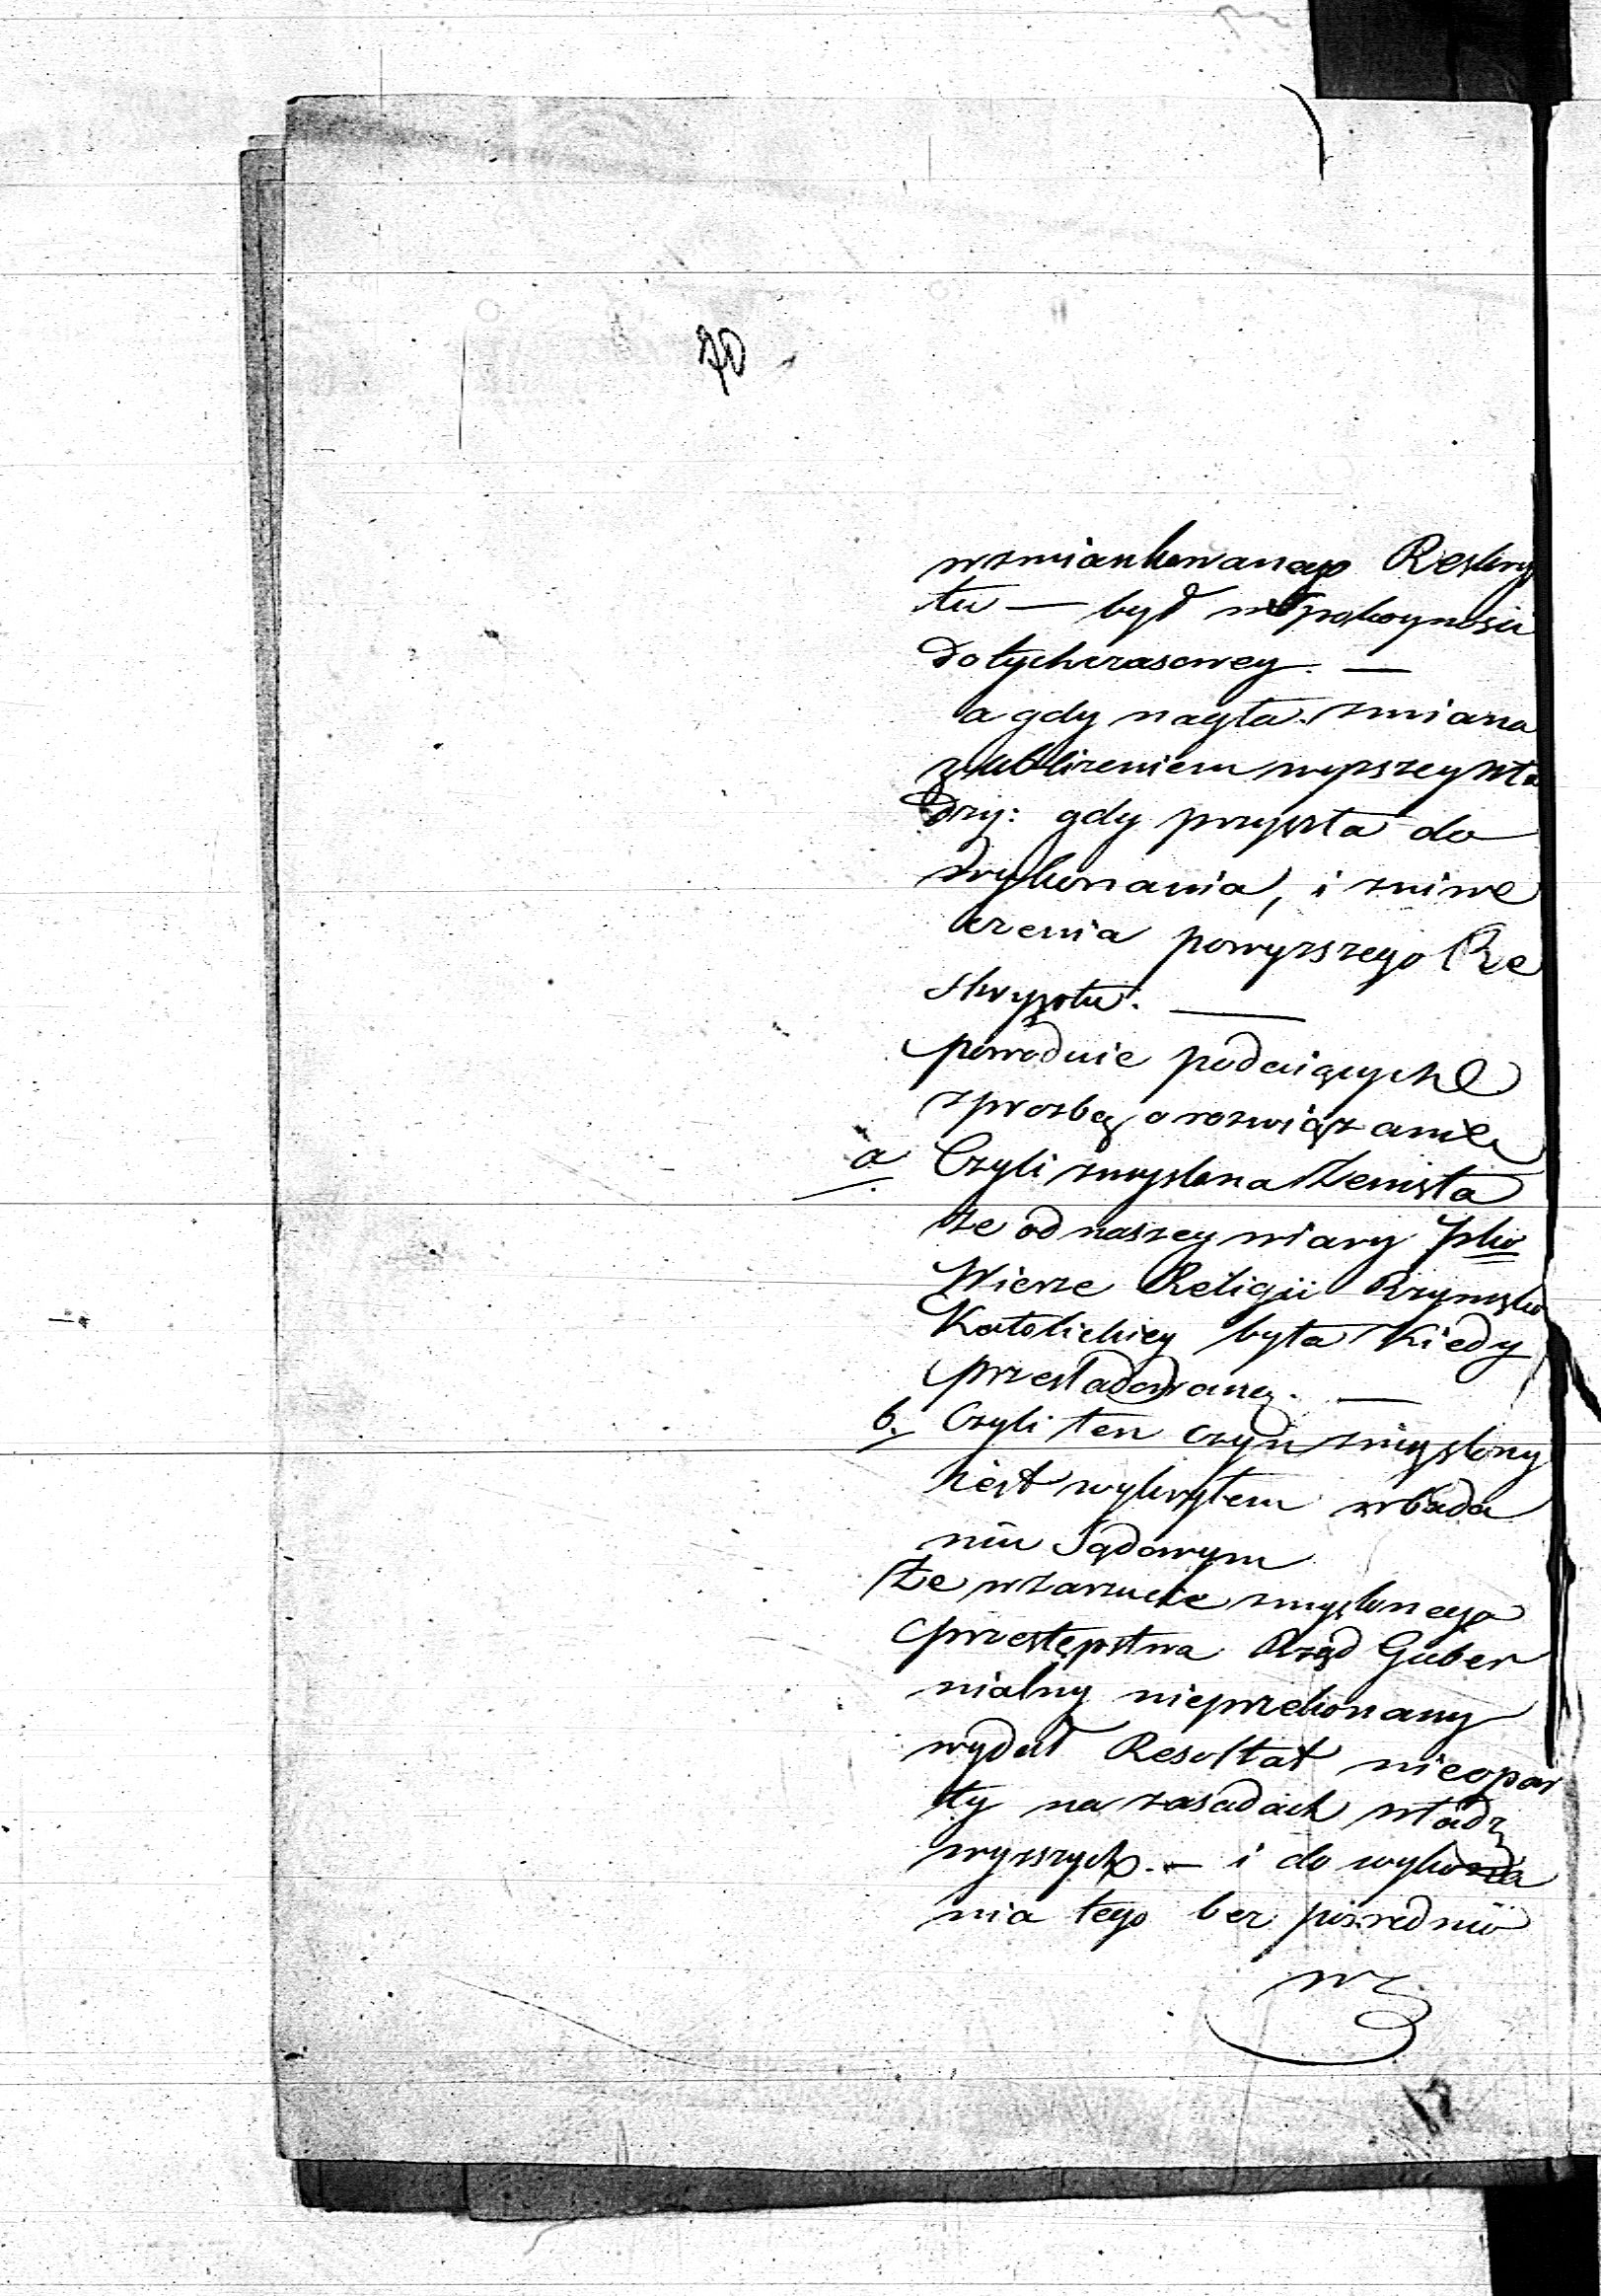 70
wzmiankowanego Reskryp
tu — był w spokoynosci
dotychczasowey. —
a gdy nagła zmiana
z ubliżeniem wyższey wła
dzy: gdy przyszła do
wykonania, i zniwe
czenia powyższego Re
skryptu. —
powodnie
z prozbą o rozwiązanie
a Czyli zmyslona Zemsta
że od naszey wiary
Wierze Religii Rzymsko
Katolickiey była Kiedy
przesladowaną. —
b. Czyli ten czyn zmyslony
iest wykrytem w bada
niu Sądowym
Że w zarzucie zmyslonego
przestępstwa Rząd Guber
nialny nieprzekonany
wydał Resoltat nieopar
ty na zasadach władz
wyzszych. — i do wykona
nia tego bez posrednio